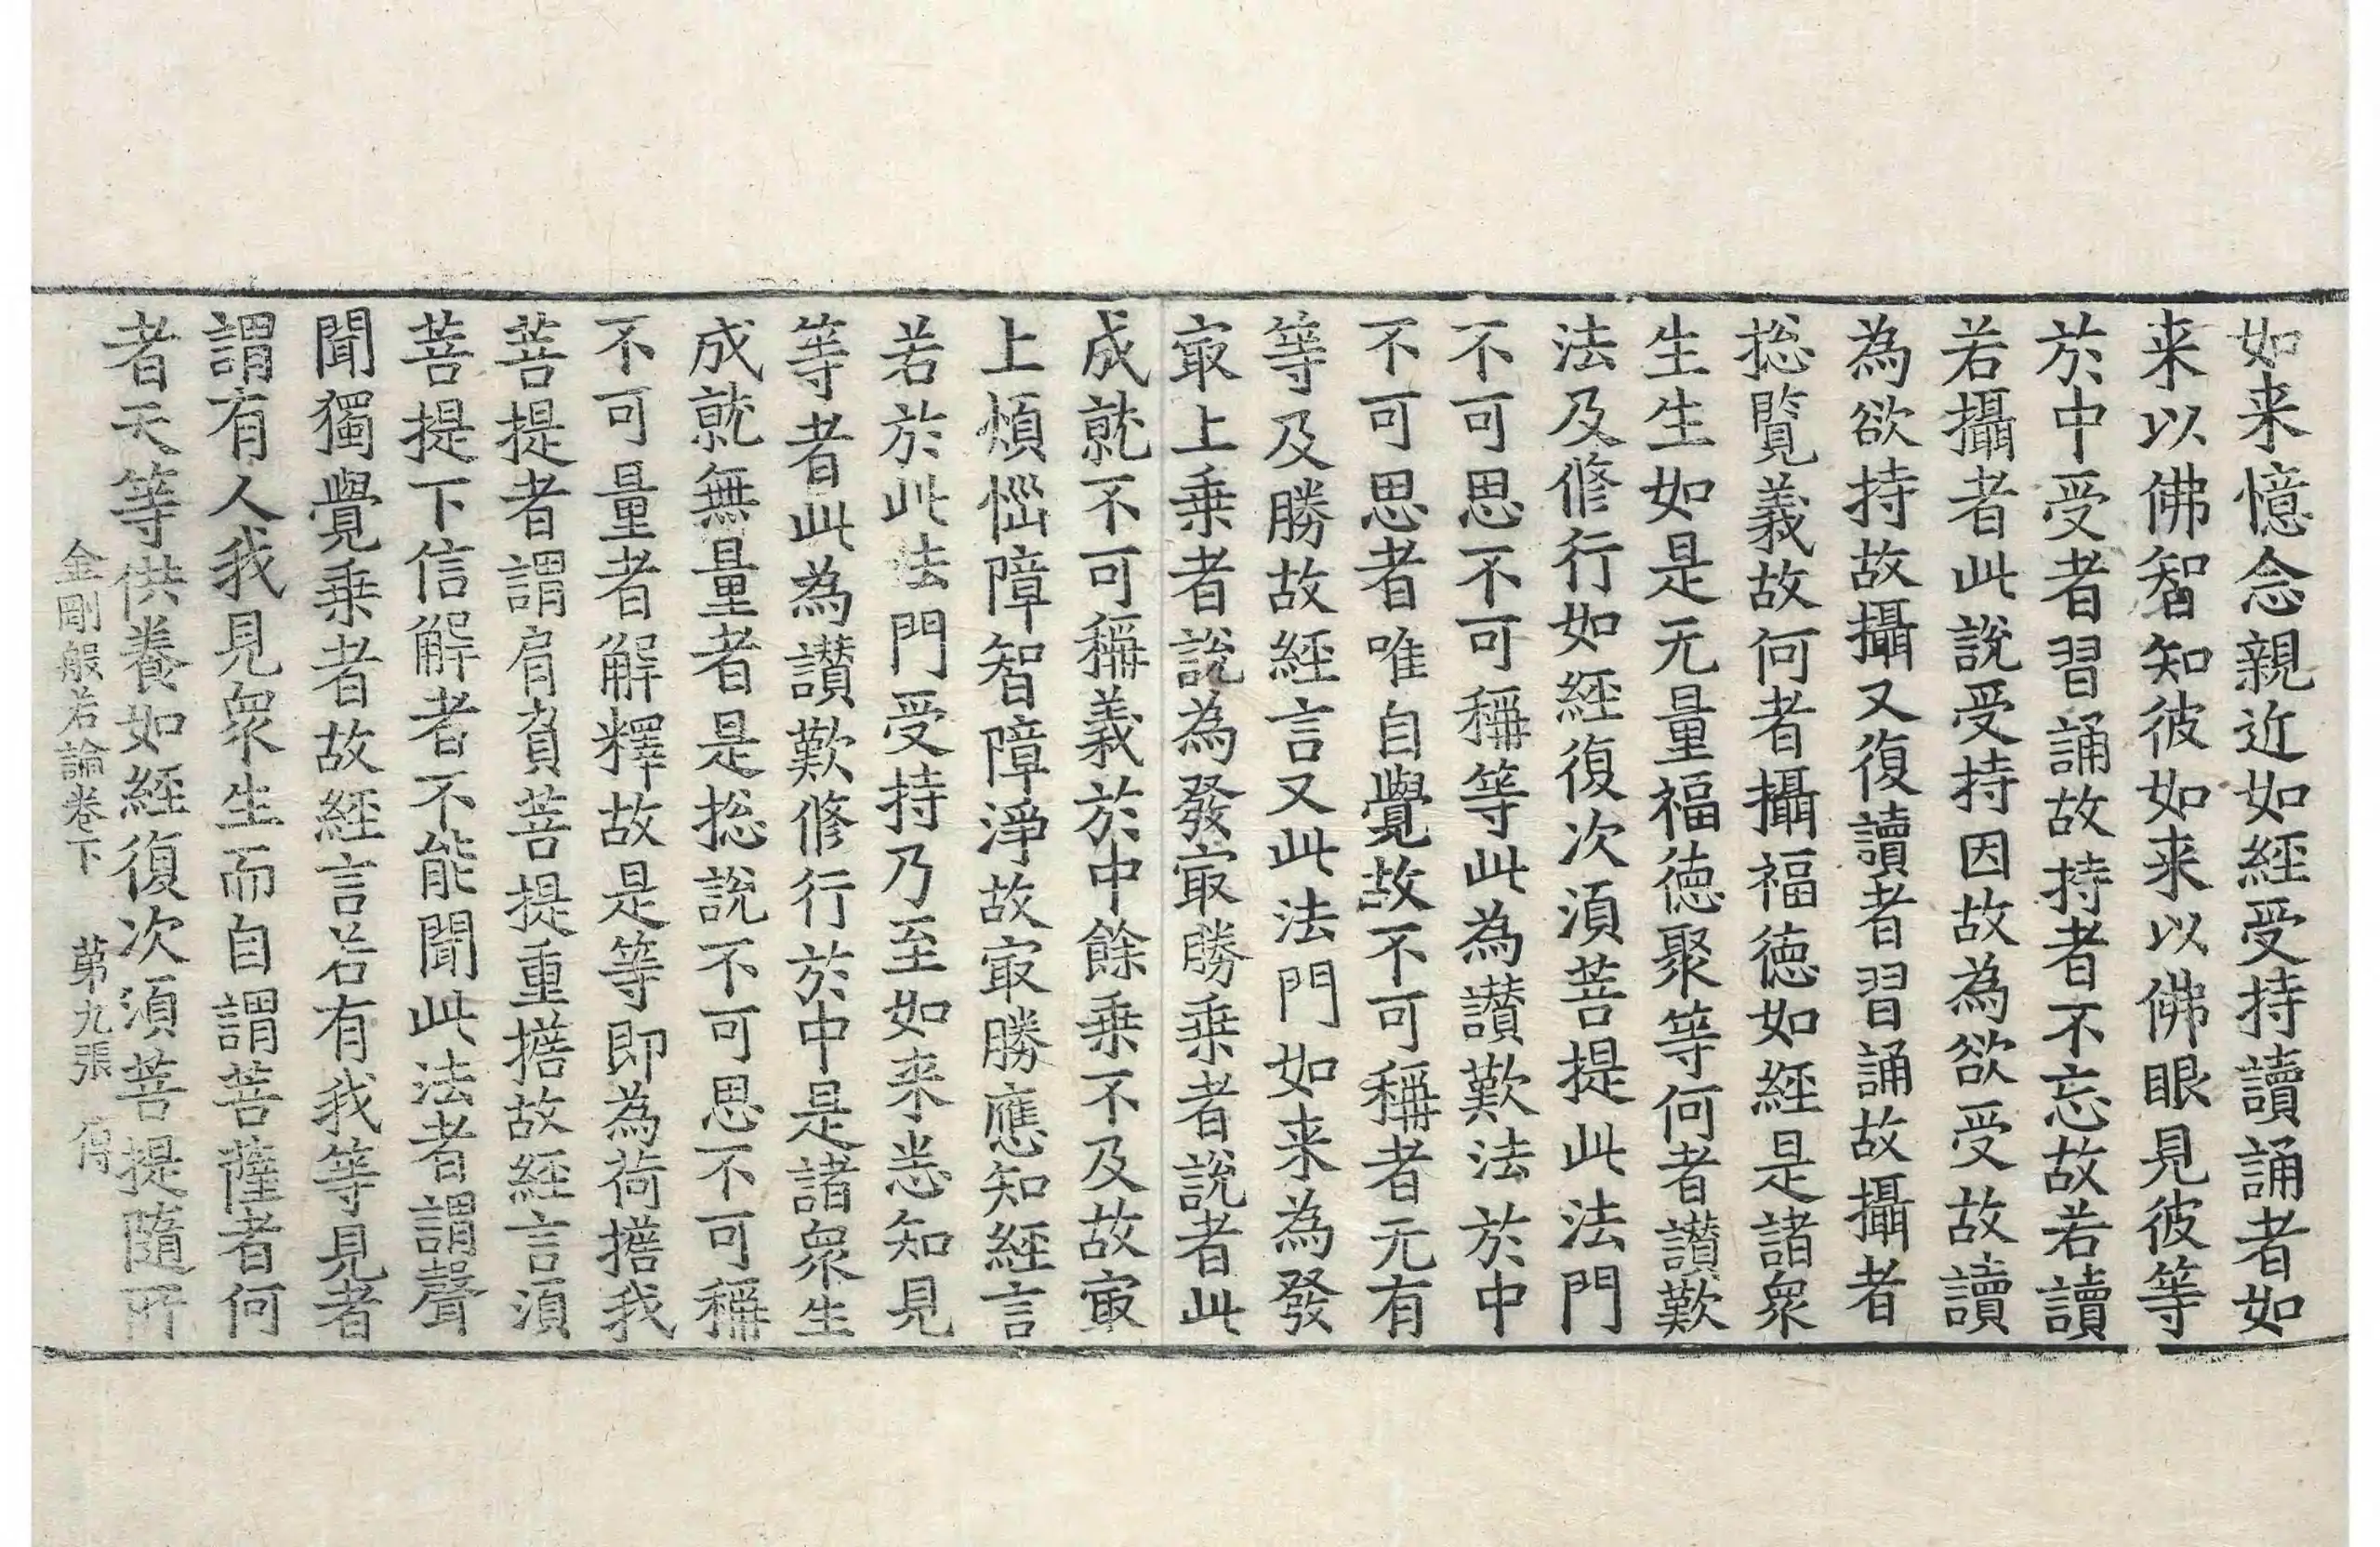 如来憶念親近如經受持讀誦者如
来以佛智知彼如来以佛眼見彼等
於中受者習誦故持者不忘故若讀
若攝者此說受持因故為欲受故讀
為欲持故攝又復讀者習誦故攝者
捴覽義故何者攝福德如經是諸衆
生生如是无量福德聚等何者讃歎
法及修行如經復次湏菩提此法門
不可思不可稱等此為讃歎法於中
不可思者唯自覺故不可稱者无有
等及勝故經言又此法門如来為發
㝡上乗者說為發㝡勝乗者說者此
成就不可稱義於中餘乗不及故㝡
上煩惱障智障淨故㝡勝應知經言
若於此法門受持乃至如来悉知見
等者此為讃歎修行於中是諸衆生
成就無量者是捴說不可思不可稱
不可量者解釋故是等即為荷擔我
菩提者謂肩負菩提重擔故經言湏
菩提下信解者不能聞此法者謂聲
聞獨覺乗者故經言若有我等見者
謂有人我見衆生而自謂菩薩者何
者天等供養如經復次湏菩提隨所
金剛般若論卷下　第九張